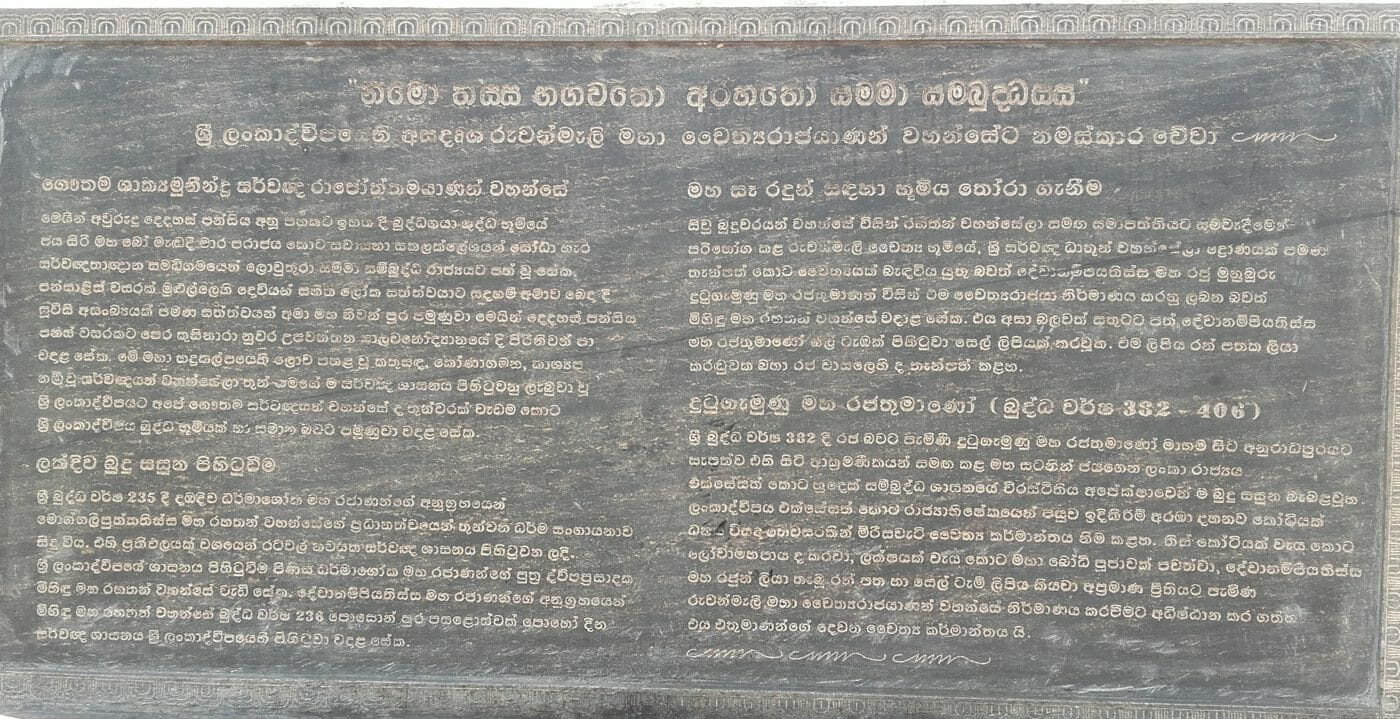 "නමො තස්ස භගවතො අරහතෝ සම්මා සම්බුද්ධස්ස"
ශ්‍රී ලංකාද්වීපයෙහි අසදෘශ රුවන්මැලි මහා චෛත්‍යරාජයාණන් වහන්සේට නමස්කාර වේවා
ගෞතම ශාක්‍යමුනීන්ද්‍ර සර්වඥ රාජෝත්තමයාණන් වහන්සේ
මෙයින් අවුරුදු දෙදහස් පන්සිය අනූ පහකට ඉහත දී බුද්ධගයා ශුද්ධ භූමියේ
ජය සිරි මහ බෝ මැඬදී මාර පරාජය කොට සවාසනා සකලක්ලේශයන් සෝධා හැර
සර්වඥතාඥාන සමධිගමයෙන් ලොවුතුරා සම්මා සම්බුද්ධ රාජ්‍යයට පත් වූ සේක.
පන්සාළිස් වසරක් මුළුල්ලෙහි දෙවියන් සහිත ලෝක සත්ත්වයාට සදහම් අමාව බෙදා දී
සුවිසි අසංඛ්‍යයක් පමණ සත්ත්වයන් අමා මහ නිවන් පුර පමුණුවා මෙයින් දෙදහස් පන්සිය
පනස් වසරකට පෙර කුසිනාරා නුවර උපවත්තන සාලවනෝද්‍යානයේ දී පිරිනිවන් පා
වදාළ සේක. මේ මහා භද්‍රකල්පයෙහි ලොව පහළ වූ කකුසඳ, කෝණාගමන, කාශ්‍යප
නම් වූ සර්වඥයන් වහන්සේලා තුන් නමගේ ම සර්වඥ ශාසනය පිහිටුවනු ලැබුවා වූ
ශ්‍රී ලංකාද්වීපයට අපේ ගෞතම සර්වඥයන් වහන්සේ ද තුන්වරක් වැඩම කොට
ශ්‍රී ලංකාද්වීපය බුද්ධ භූමියක් හා සමාන බවට පමුණුවා වදාළ සේක.
ලක්දිව බුදු සසුන පිහිටුවීම
ශ්‍රී බුද්ධ වර්ෂ 235 දී දඹදිව ධර්මාශෝක මහ රජාණන්ගේ අනුග්‍රහයෙන්
මොග්ගලිපුත්තතිස්ස මහ රහතන් වහන්සේගේ ප්‍රධානත්වයෙන් තුන්වන ධර්ම සංගායනාව
සිදු විය. එහි ප්‍රතිඵලයක් වශයෙන් රටවල් නවයක සර්වඥ ශාසනය පිහිටුවන ලදි.
ශ්‍රී ලංකාද්වීපයේ ශාසනය පිහිටුවීම පිණිස ධර්මාශෝක මහ රජාණන්ගේ පුත්‍ර ද්වීපප්‍රසාදක
මිහිඳු මහ රහතන් වහන්සේ වැඩි සේක. දේවානම්පියතිස්ස මහ රජාණන්ගේ අනුග්‍රහයෙන්
මිහිඳු මහ රහතන් වහන්සේ බුද්ධ වර්ෂ 236 පොසොන් පුර පසළොස්වක් පොහෝ දින
සර්වඥ ශාසනය ශ්‍රී ලංකාද්වීපයෙහි පිහිටුවා වදාළ සේක.
මහ සෑ රදුන් සඳහා භූමිය තෝරා ගැනීම
සිවු බුදුවරයන් වහන්සේ විසින් රහතන් වහන්සේලා සමඟ සමාපත්තියට සමවැදීමෙන්
පරිභෝග කළ රුවන්මැලි චෛත්‍ය භූමියේ, ශ්‍රී සර්වඥ ධාතූන් වහන්සේලා ද්‍රෝණයක් පමණ
තැන්පත් කොට චෛත්‍යයක් බැඳවිය යුතු බවත් දේවානම්පියතිස්ස මහ රජු මුනුබුරු
දුටුගැමුණු මහ රජතුමාණන් විසින් එම චෛත්‍යරාජයා නිර්මාණය කරනු ලබන බවත්
මිහිඳු මහ රහතන් වහන්සේ වදාළ සේක. එය අසා බලවත් සතුටට පත් දේවානම්පියතිස්ස
මහ රජතුමාණෝ ගල් ටැඹක් පිහිටුවා සෙල් ලිපියක් කරවූහ. එම ලිපිය රන් පතක ලියා
කරඬුවක බහා රජ වාසලෙහි ද තැන්පත් කළහ.
දුටුගැමුණු මහ රජතුමාණෝ ( බුද්ධ වර්ෂ 382 - 406 )
ශ්‍රී බුද්ධ වර්ෂ 382 දී රජ බවට පැමිණි දුටුගැමුණු මහ රජතුමාණෝ මාගම සිට අනුරාධපුරයට
සැපත්ව එහි සිටි ආක්‍රමණිකයන් සමඟ කළ මහ සටනින් ජයගෙන ලංකා රාජ්‍යය
එක්සේසත් කොට හුදෙක් සම්බුද්ධ ශාසනයේ චිරස්ථිතිය අපේක්ෂාවෙන් ම බුදු සසුන බැබළවූහ
ලංකාද්වීපය එක්සේසත් කොට රාජ්‍යාභිෂේකයෙන් පසුව ඉදිකිරීම් අරඹා දහනව කෝටියක්
ධනය වියදමින් මිරිසවැටි චෛත්‍ය කර්මාන්තය නිම කළහ. තිස් කෝටියක් වැය කොට
ලෝවාමහපාය ද කරවා, ලක්ෂයක් වැය කොට මහා බෝධි පූජාවක් පවත්වා, දේවානම්පියතිස්ස
මහ රජුන් ලියා තැබූ රන් පත හා සෙල් ටැම් ලිපිය කියවා අප්‍රමාණ ප්‍රීතියට පැමිණ
රුවන්මැලි මහා චෛත්‍යරාජයාණන් වහන්සේ නිර්මාණය කරවීමට අධිෂ්ඨාන කර ගත්හ
එය එතුමාණන්ගේ දෙවන චෛත්‍ය කර්මාන්තය යි.